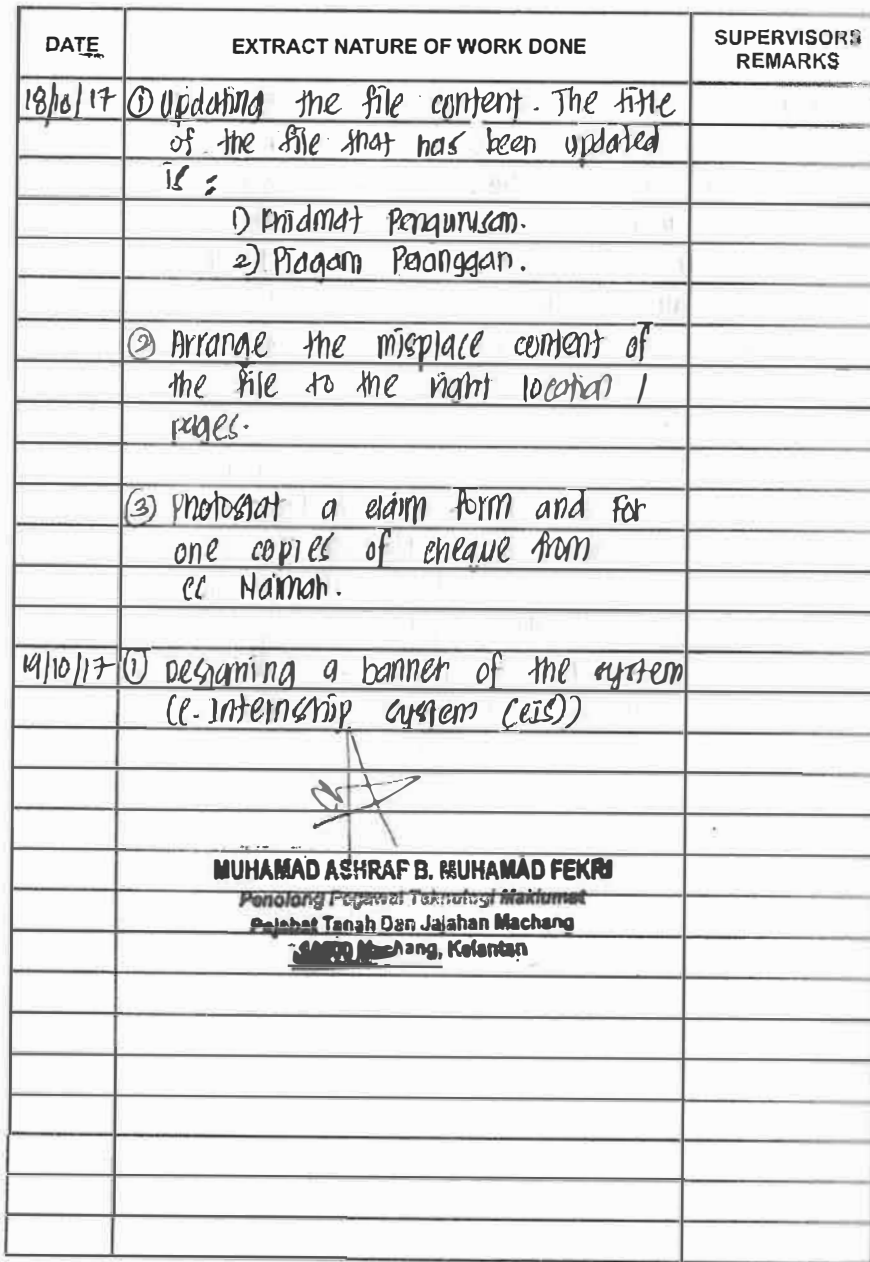 DATE EXTRACT NATURE OF WORK DONE SUPERVISORS REMARKS
18/10/17 ① Updating the file content. The title
of the file that has been updated
is :
1) Khidmat Pengurusan.
2) Piagam Pelanggan.
② Arrange the misplace content of
the file to the right location /
pages.
③ Photostat a claim form and for
one copies of cheque from
cc Naimah.
19/10/17 ① Designing a banner of the system
(e-Internship system (eIS))
MUHAMAD ASHRAF B. MUHAMAD FEKRI
Penolong Pegawai Teknologi Maklumat
Pejabat Tanah Dan Jajahan Machang
Machang, Kelantan